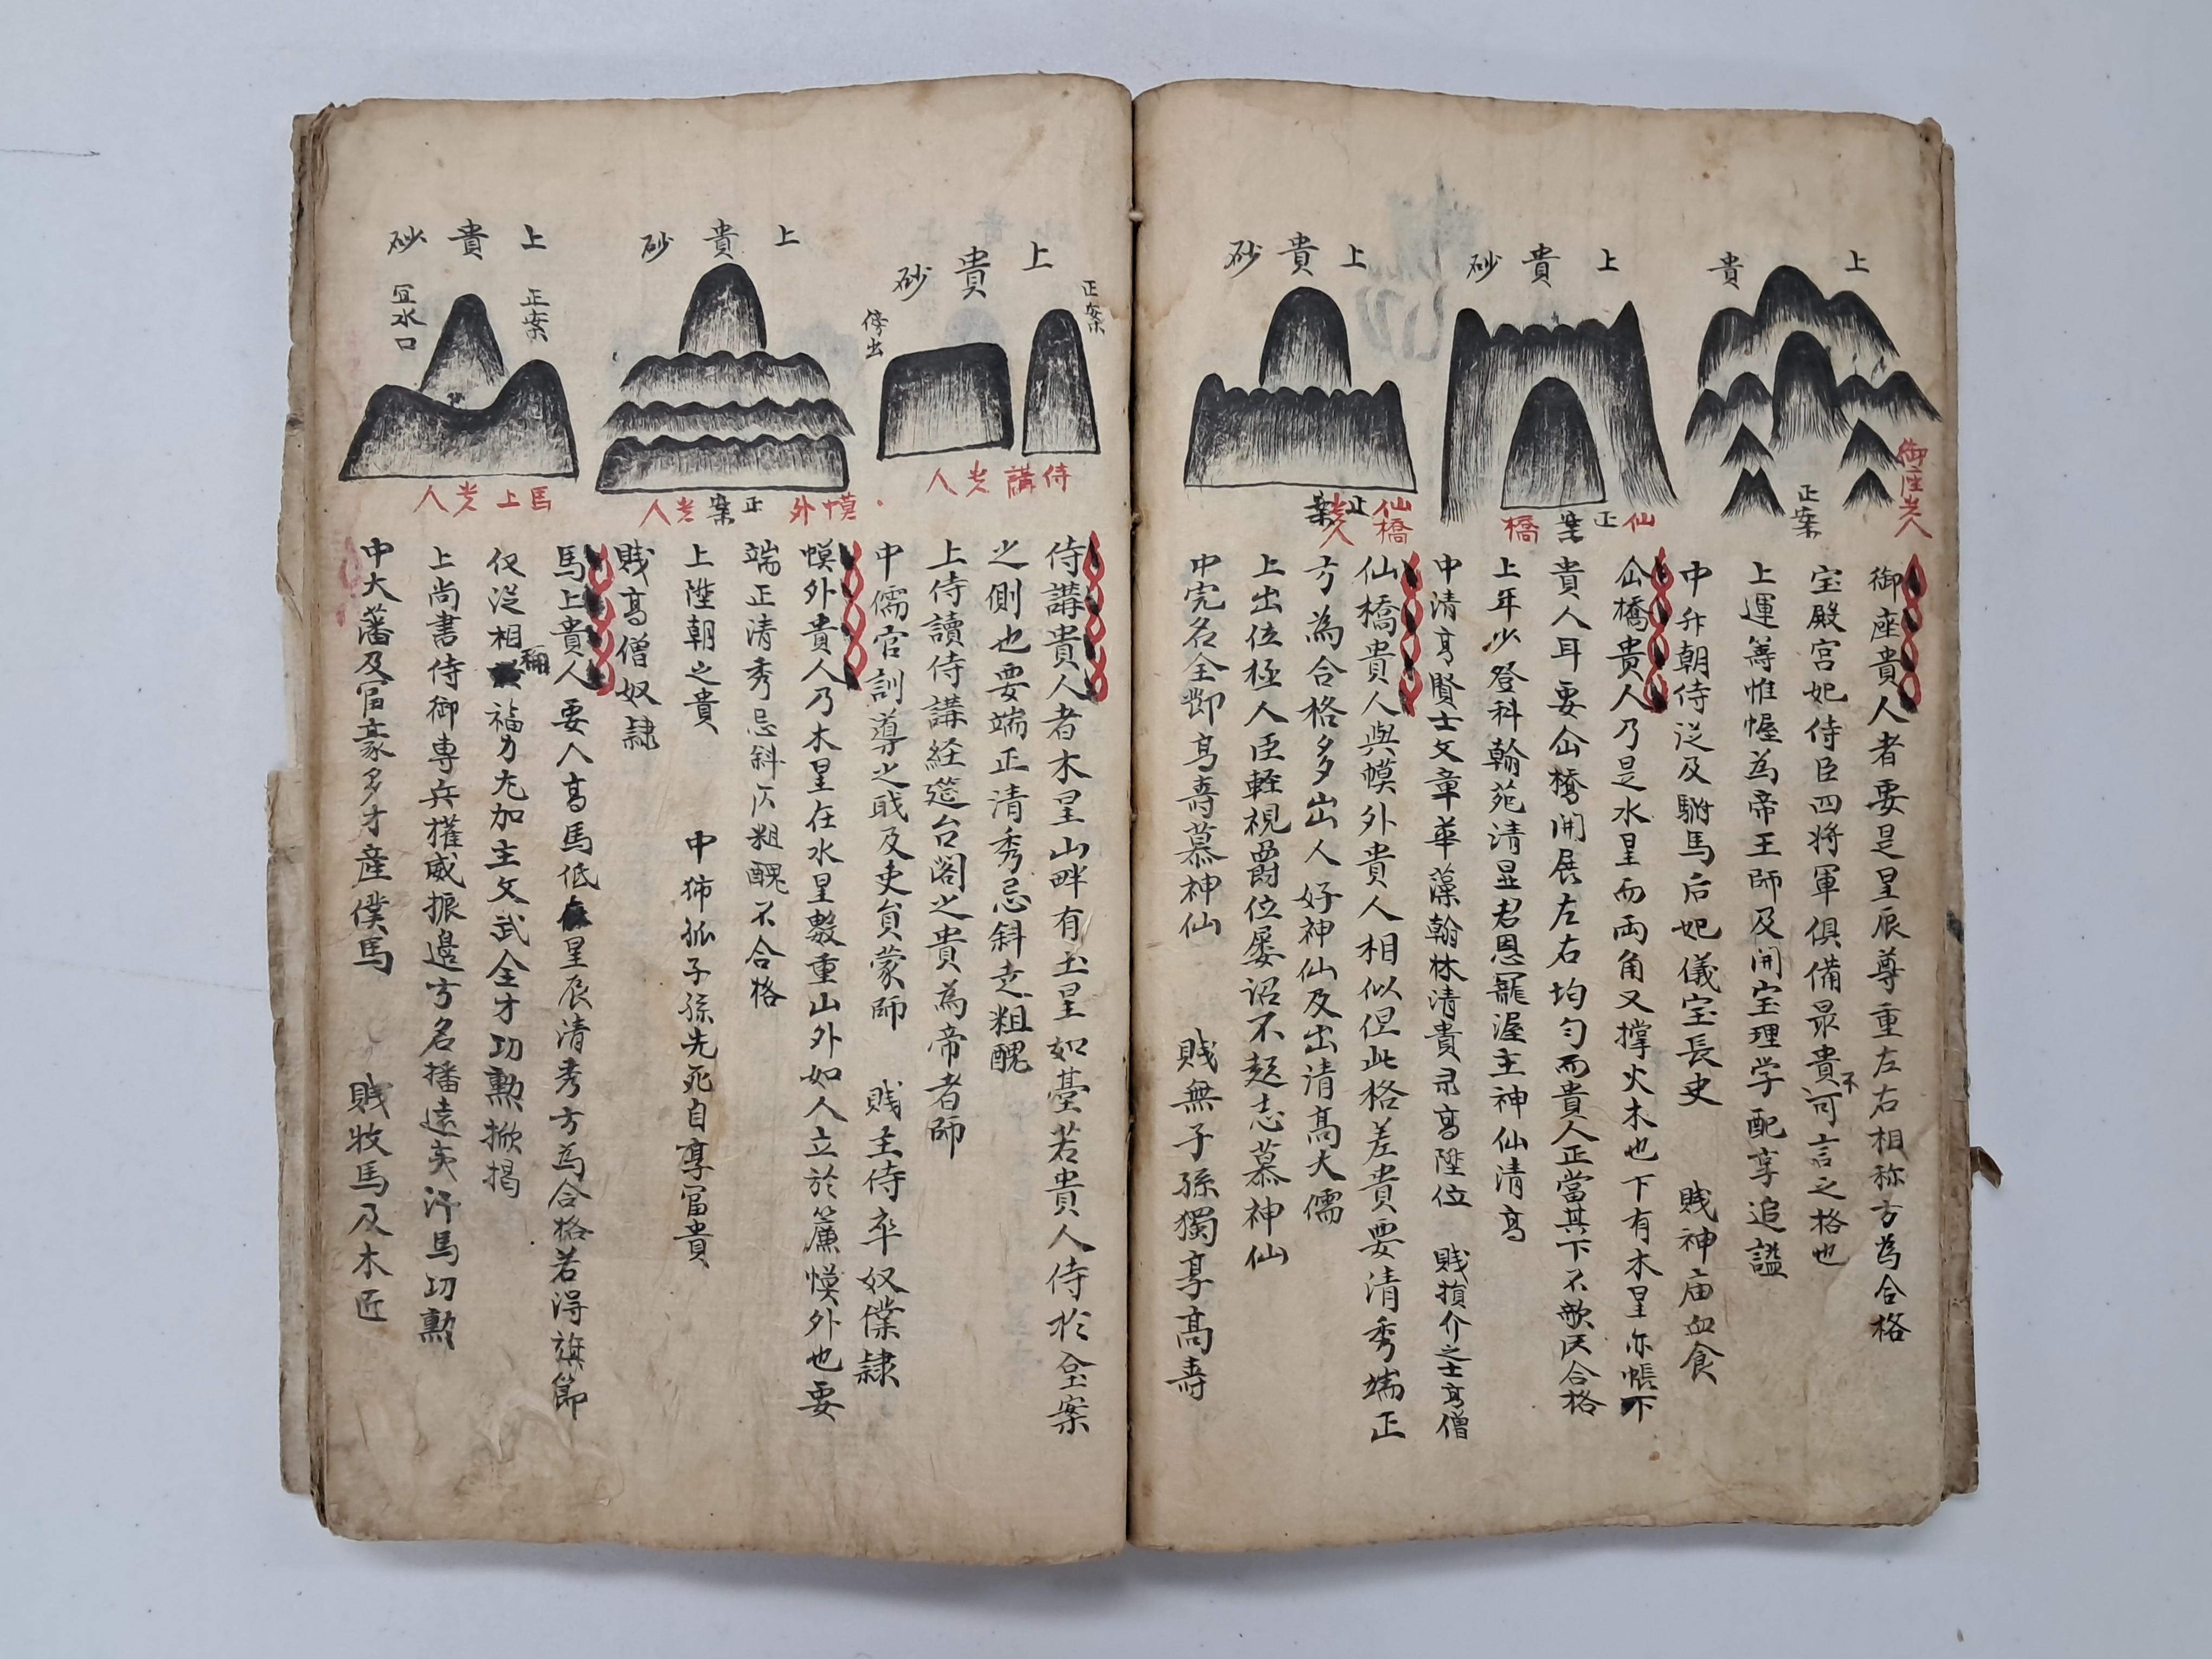 上貴
御座貴人
正案
上貴砂
仙橋
正案
上貴砂
仙橋貴人
正案
御座貴人者要是星辰尊重左右相称方為合格
宝殿宮妃侍臣四将軍俱備最貴不可言之格也
上運籌惟幄為帝王師及開宝理学配享追謚
中升朝侍従及駙馬后妃儀宝長史 賎神庙血食
仚橋貴人乃是水星而両角又撑火木也下有木星亦帳下
貴人耳要仚橋開展左右均匀而貴人正當其下不欹仄合格
上年少登科翰苑清显君恩寵渥主神仙清高
中清高賢士文章華藻翰林清貴高陞位 賎介之士高僧
仙橋貴人與幙外貴人相似但此格差貴要清秀端正
方為合格多出人好神仙及出清高大儒
上出位極人臣軽視爵位屡诏不起志慕神仙
中完名全節高壽慕神仙 賎無子孫獨享高壽
上貴砂
正案
傍出
侍講貴人
上貴砂
幙外貴人
正案
上貴砂
正案
宜水口
馬上貴人
侍講貴人者木星山畔有土星如䑓若貴人侍於仝案
之側也要端正清秀忌斜走粗醜
上侍讀侍講経筵台閣之貴為帝者師
中儒官訓導之戝及吏貟蒙師 賎主侍卒奴僕隸
幙外貴人乃木星在水星數重山外如人立於簾幙外也要
端正清秀忌斜仄粗醜不合格
上陞朝之貴 中孤子孫先死自享冨貴
賎高僧奴隸
馬上貴人要人高馬低星辰清秀方為合格若得旗節
仪従相稱福力尤加主文武全才功勲掀揭
上尚書侍御専兵權威振邊方名播遠夷汗馬功勲
中大藩及冨豪多才産僕馬 賎牧馬及木匠